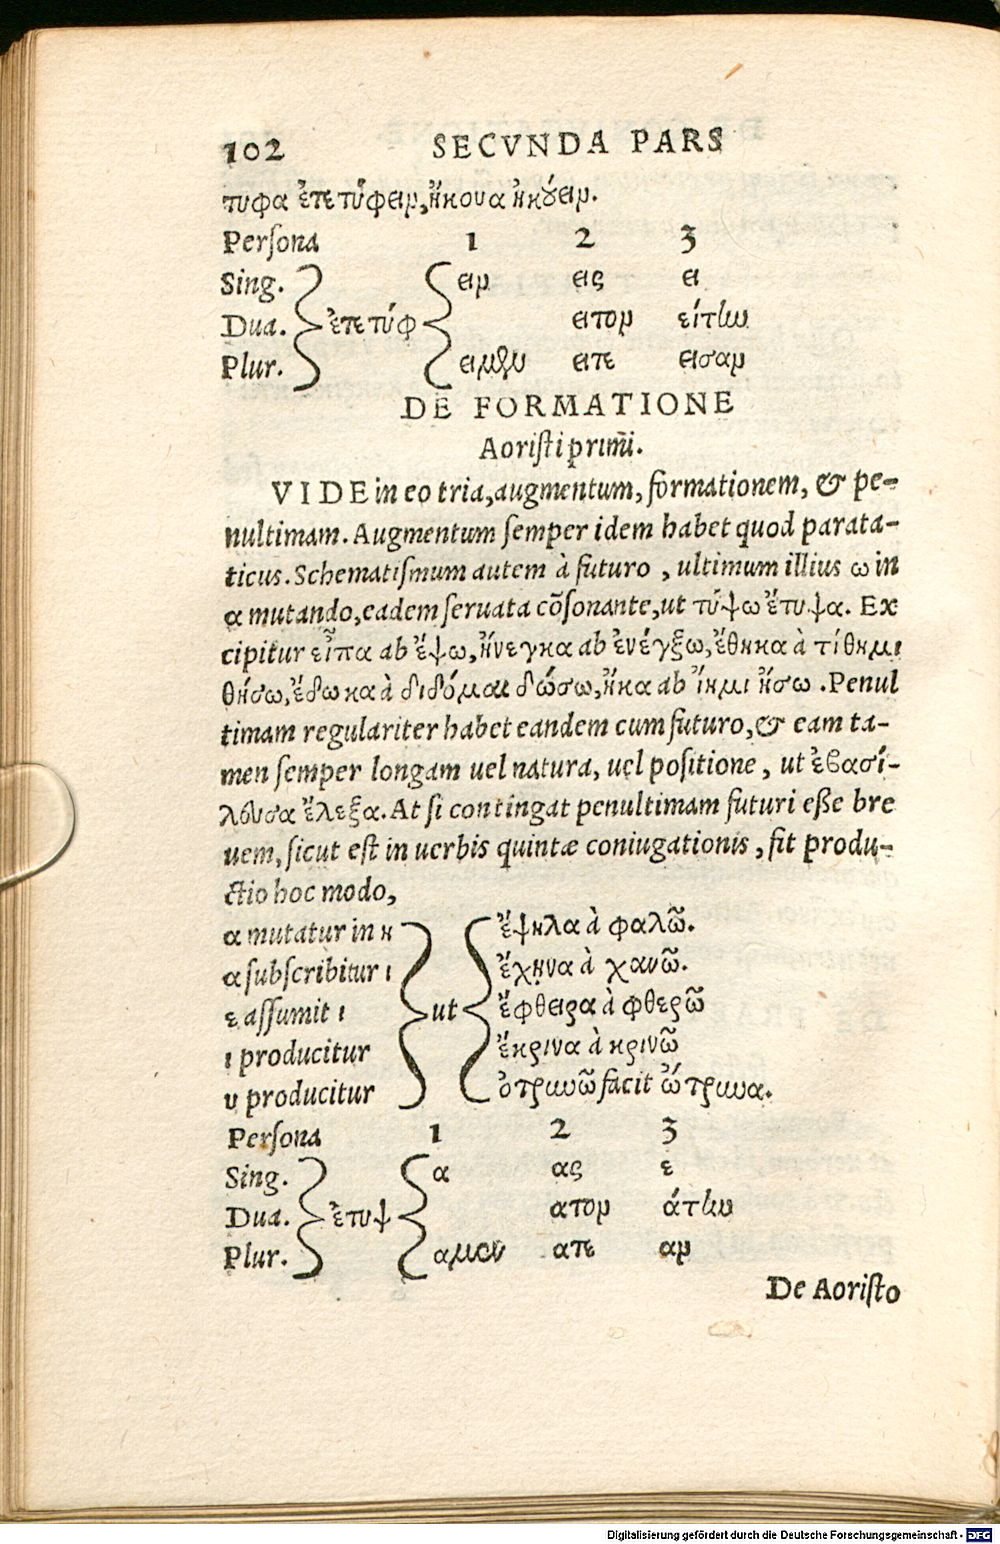 102 SECVNDA PARS
τυφα ἐπετύφειν, ἤκουα ἠκούειν.
Perſona 1 2 3
Sing. ειν εις ει
Dua. ἐπετύφ ειτον είτην
Plur. ειμεν ειτε εισαν
DE FORMATIONE
Aoriſti primi.
VIDE in eo tria, augmentum, formationem, & pe-
nultimam. Augmentum ſemper idem habet quod parata-
ticus. Schematiſmum autem à futuro, ultimum illius ω in
α mutando, eadem ſeruata cõſonante, ut τύψω ἔτυψα. Ex
cipitur εἶπα ab ἔψω, ἤνεγκα ab ἐνέγξω, ἔθηκα à τίθημι
θήσω, ἔδωκα à διδόμαι δώσω, ἧκα ab ἵημι ἥσω. Penul
timam regulariter habet eandem cum futuro, & eam ta-
men ſemper longam uel natura, uel poſitione, ut ἐβασί-
λευσα ἔλεξα. At ſi contingat penultimam futuri eſſe bre
uem, ſicut eſt in uerbis quintæ coniugationis, fit produ-
ctio hoc modo,
α mutatur in η ἔψηλα à φαλῶ.
α ſubſcribitur ι ἔχῃνα à χανῶ.
ε aſſumit ι ut ἔφθειρα à φθερῶ
ι producitur ἔκρινα à κρινῶ
υ producitur ὀτρυνῶ facit ὤτρυνα.
Perſona 1 2 3
Sing. α ας ε
Dua. ἐτυψ ατον άτην
Plur. αμεν ατε αν
De Aoriſto
Digitalisierung gefördert durch die Deutsche Forschungsgemeinschaft - DFG